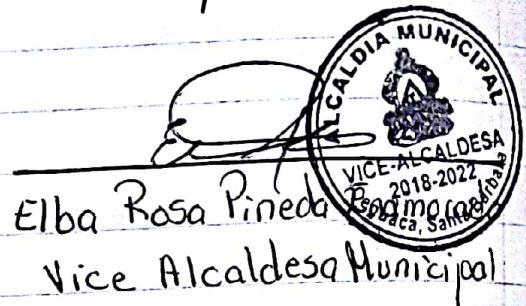 ALCALDIA MUNICIPAL
VICE-ALCALDESA
2018-2022
Elba Rosa Pineda
Vice Alcaldesa Municipal